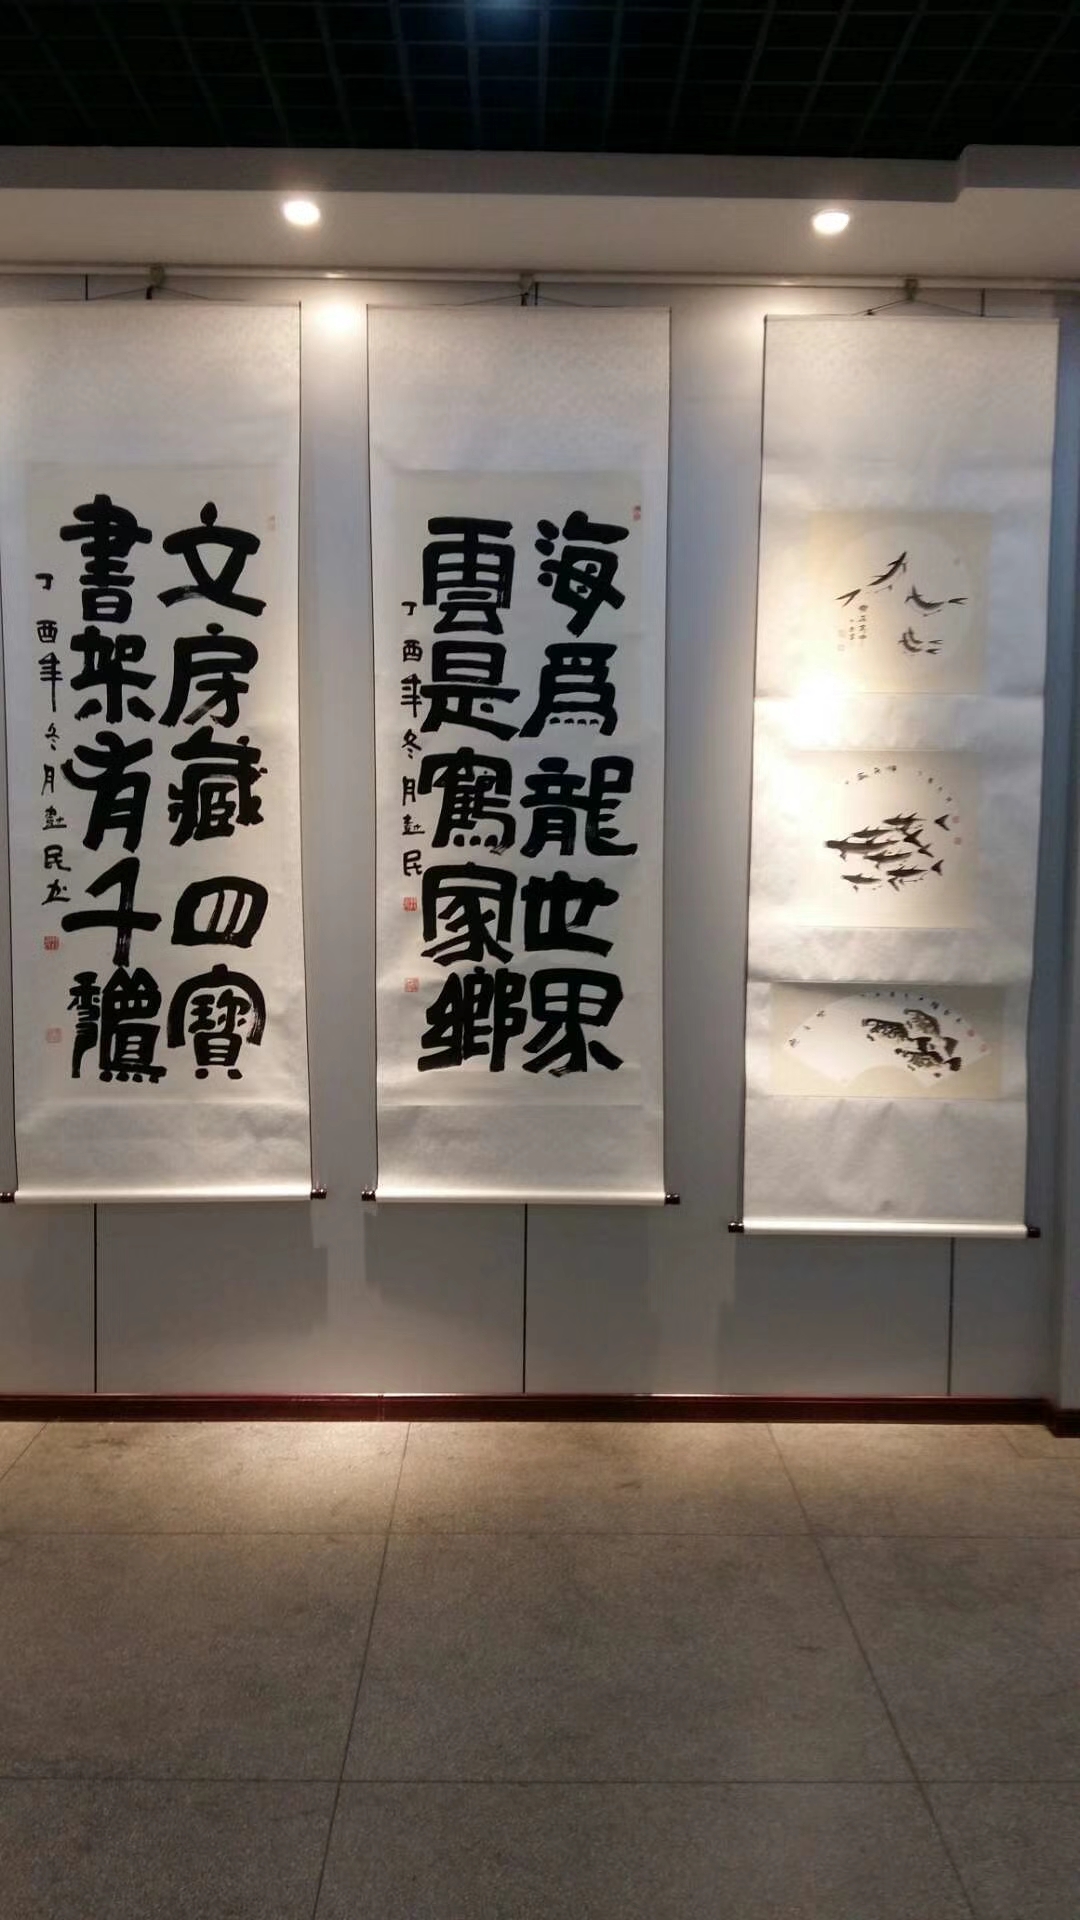 文房藏四寶
書架有千
丁酉年冬月民书
海爲龍世界
雲是鶴家鄉
丁酉年冬月民